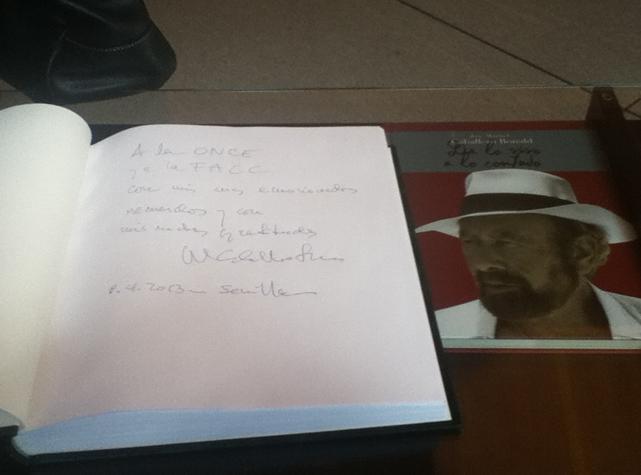 A la ONCE
y a la FACC
con mis más emocionados
recuerdos y con
mis muchas gratitudes
8.4.2013 Sevilla
José Manuel
Caballero Bonald
De lo vivo
a lo contado